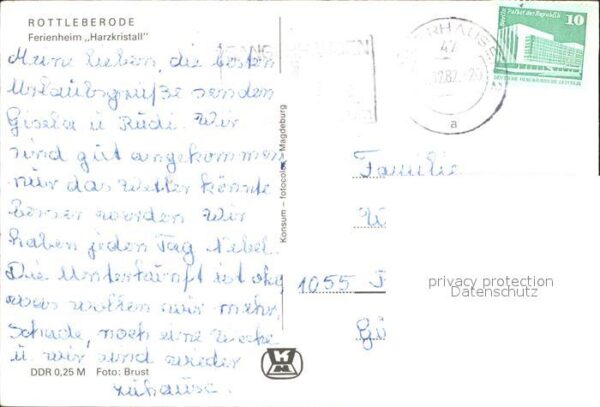 ROTTLEBERODE
Ferienheim „Harzkristall"
Meine lieben, die besten
Urlaubsgrüße senden
Gisela u Rüdi. Wir
sind gut angekommen
nur das Wetter könnte
besser worden Wir
haben jeden Tag Nebel.
Die Unterkunft ist oky
was wollen wir mehr,
Schade, noch eine Woche
u. wir sind wieder
zuhause.
DDR 0,25 M Foto: Brust
Konsum - fotocolor Magdeburg
47
.82.-20
a
Berlin Palast der Republik
10
DEUTSCHE DEMOKRATISCHE REPUBLIK
Familie
1055
privacy protection
Datenschutz